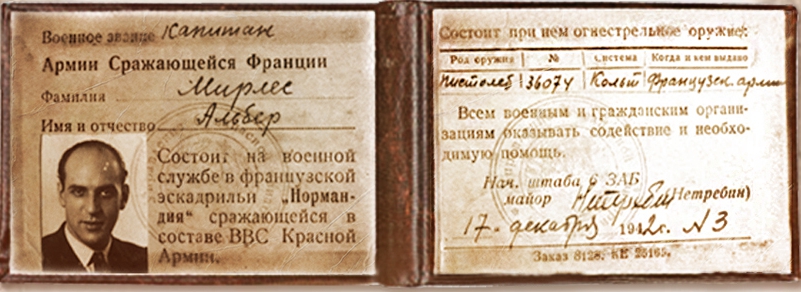 Военное звание Капитан
Армии Сражающейся Франции
Фамилия Мирлес
Имя и отчество Альбер
Состоит на военной
службе в французской
эскадрильи „Норман-
дия“ сражающейся в
составе ВВС Красной
Армии.
Состоит при нем огнестрельное оружие:
Род оружия № Система Когда и кем выдано
пистолет 36074 Кольт Французск. арми
Всем военным и гражданским органи-
зациям оказывать содействие и необхо-
димую помощь.
Нач. штаба 6 ЗАБ
майор (Нетребин)
17. декабря 1942г. №3
Заказ 8128. КП 25165.